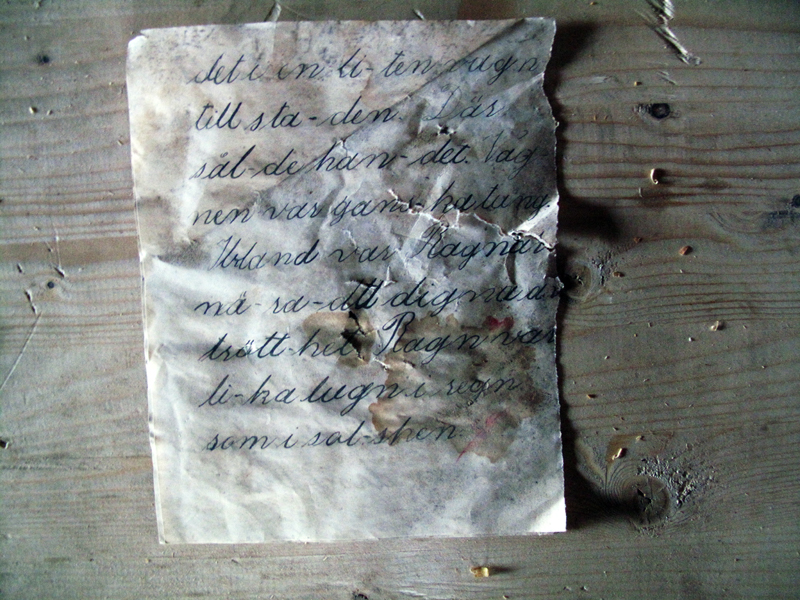 det i en li-ten vagn
till sta-den. Där
sål-de han det. Vag-
nen var gans-ka tung.
Ibland var Ragnar
nä-ra att digna av
trött-het. Ragn var
li-ka lugn i regn
som i sol-sken.